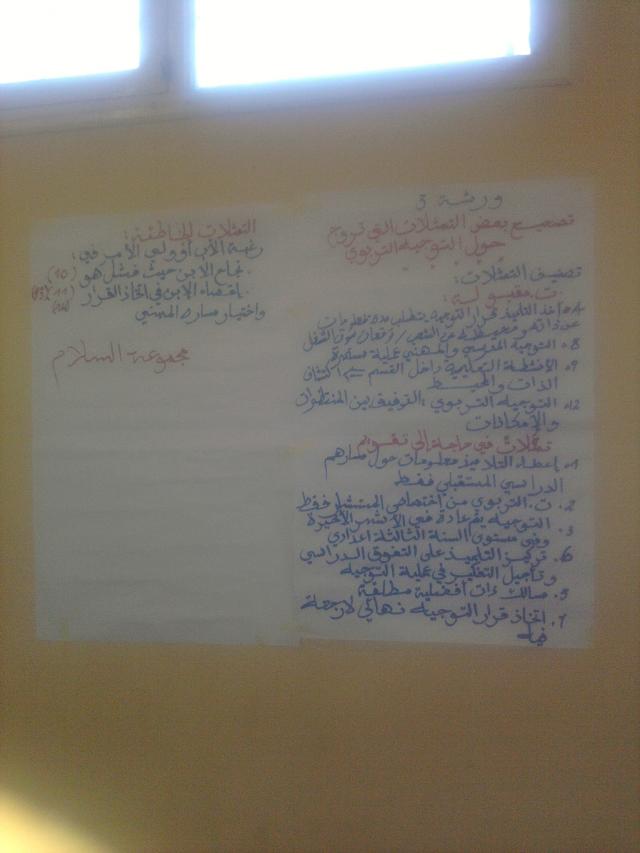 ورشة 3
تصحيح بعض التمثلات التي تروج
حول التوجيه التربوي
تصنيف التمثلات:
ت. مقبولة:
أخذ التلميذ قرار التوجيه يتطلب مدة معلومات
عن ذاته ومحيطه الشغل
8• التوجيه المدرسي والمهني عملية مستمرة
9• الأنشطة التعليمية داخل القسم اكتشاف
الذات والمحيط
12• التوجيه التربوي: التوفيق بين المنتظرات
والإمكانات
تمثلات في حاجة إلى تقويم
1• إعطاء التلاميذ معلومات حول مسارهم
الدراسي المستقبلي فقط
2. ت. التربوي من اختصاص المستشار فقط
3. التوجيه يتم عادة في الأشهر الأخيرة
وفي مستوى السنة الثالثة اعدادي
6. تركيز التلميذ على التفوق الدراسي
وتأجيل التفكير في عملية التوجيه
5. مسالك ذات أفضلية مطلقة
7. اتخاذ قرار التوجيه نهائي لا رجعة
فيه
التمثلات الخاطئة:
رغبة الأب أو ولي الأمر في:
. نجاح الابن حيث فشل هو (10)
. إقصاء الابن في اتخاذ القرار
واختيار مساره المهني
مجموعة السلام